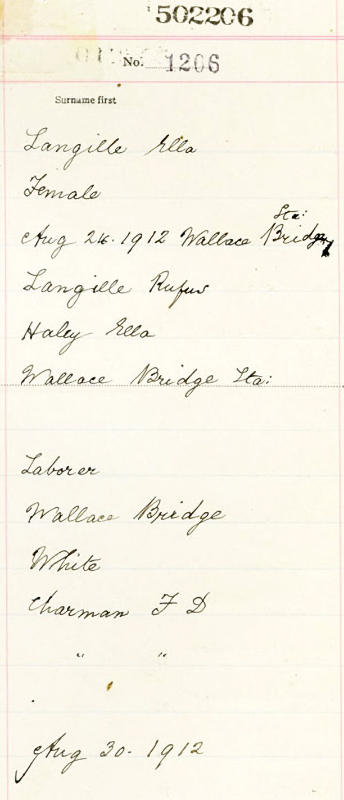 502206
No. 1206
Surname first
Langille Ella
Female
Sta:
Aug 26. 1912 Wallace Bridge
Langille Rufus
Haley Ella
Wallace Bridge Sta:
Laborer
Wallace Bridge
White
Charman F D
" "
Aug 30. 1912